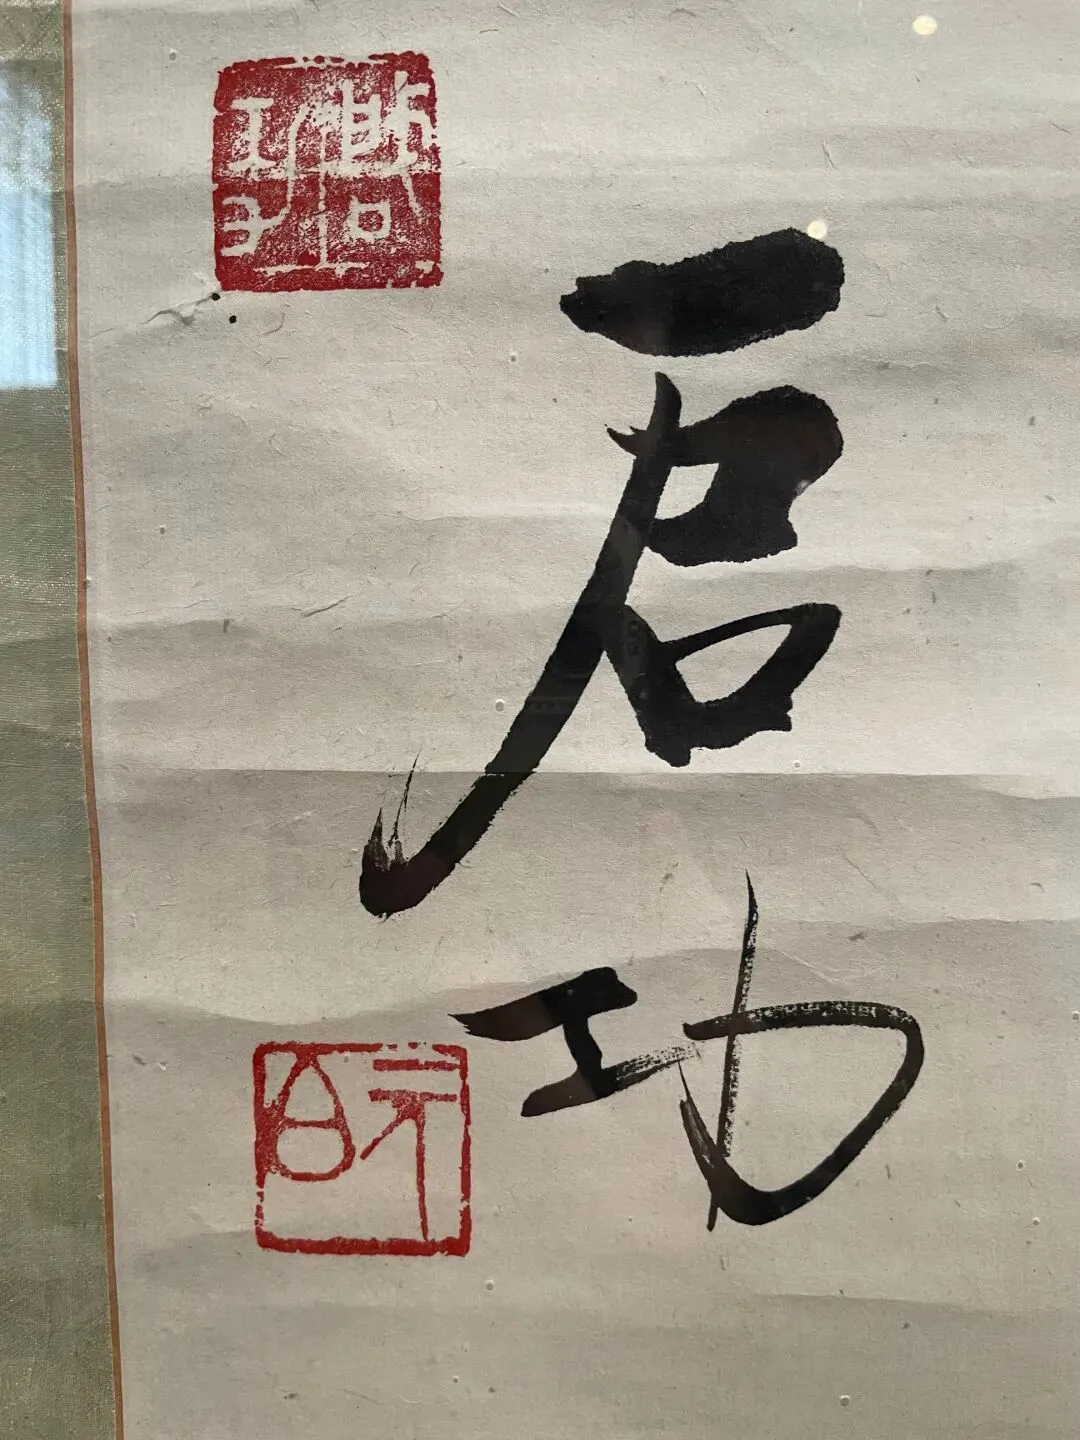 启功
元白